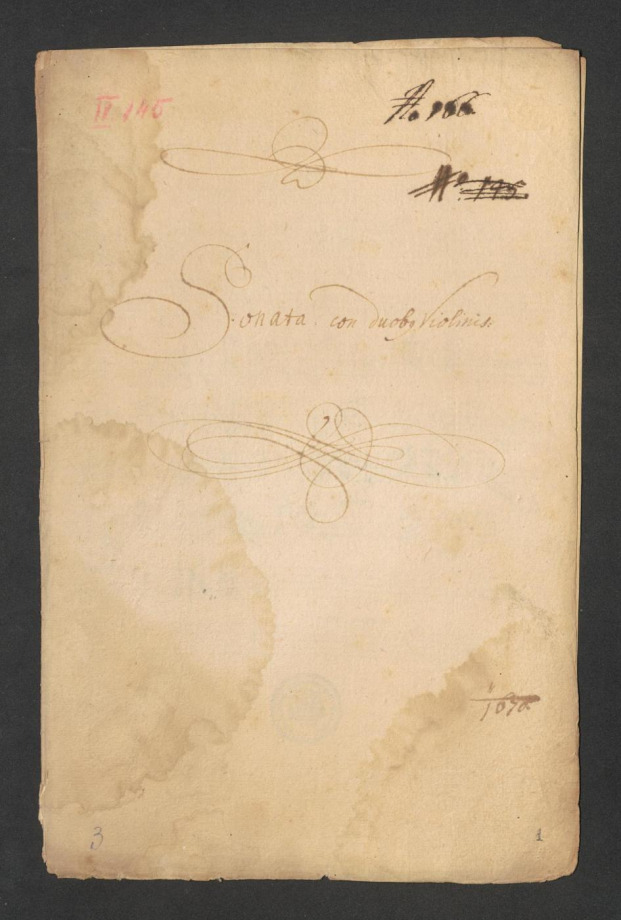 II 145
No 166.
No. 145.
Sonata con duobq Violinis.
1670.
3
1